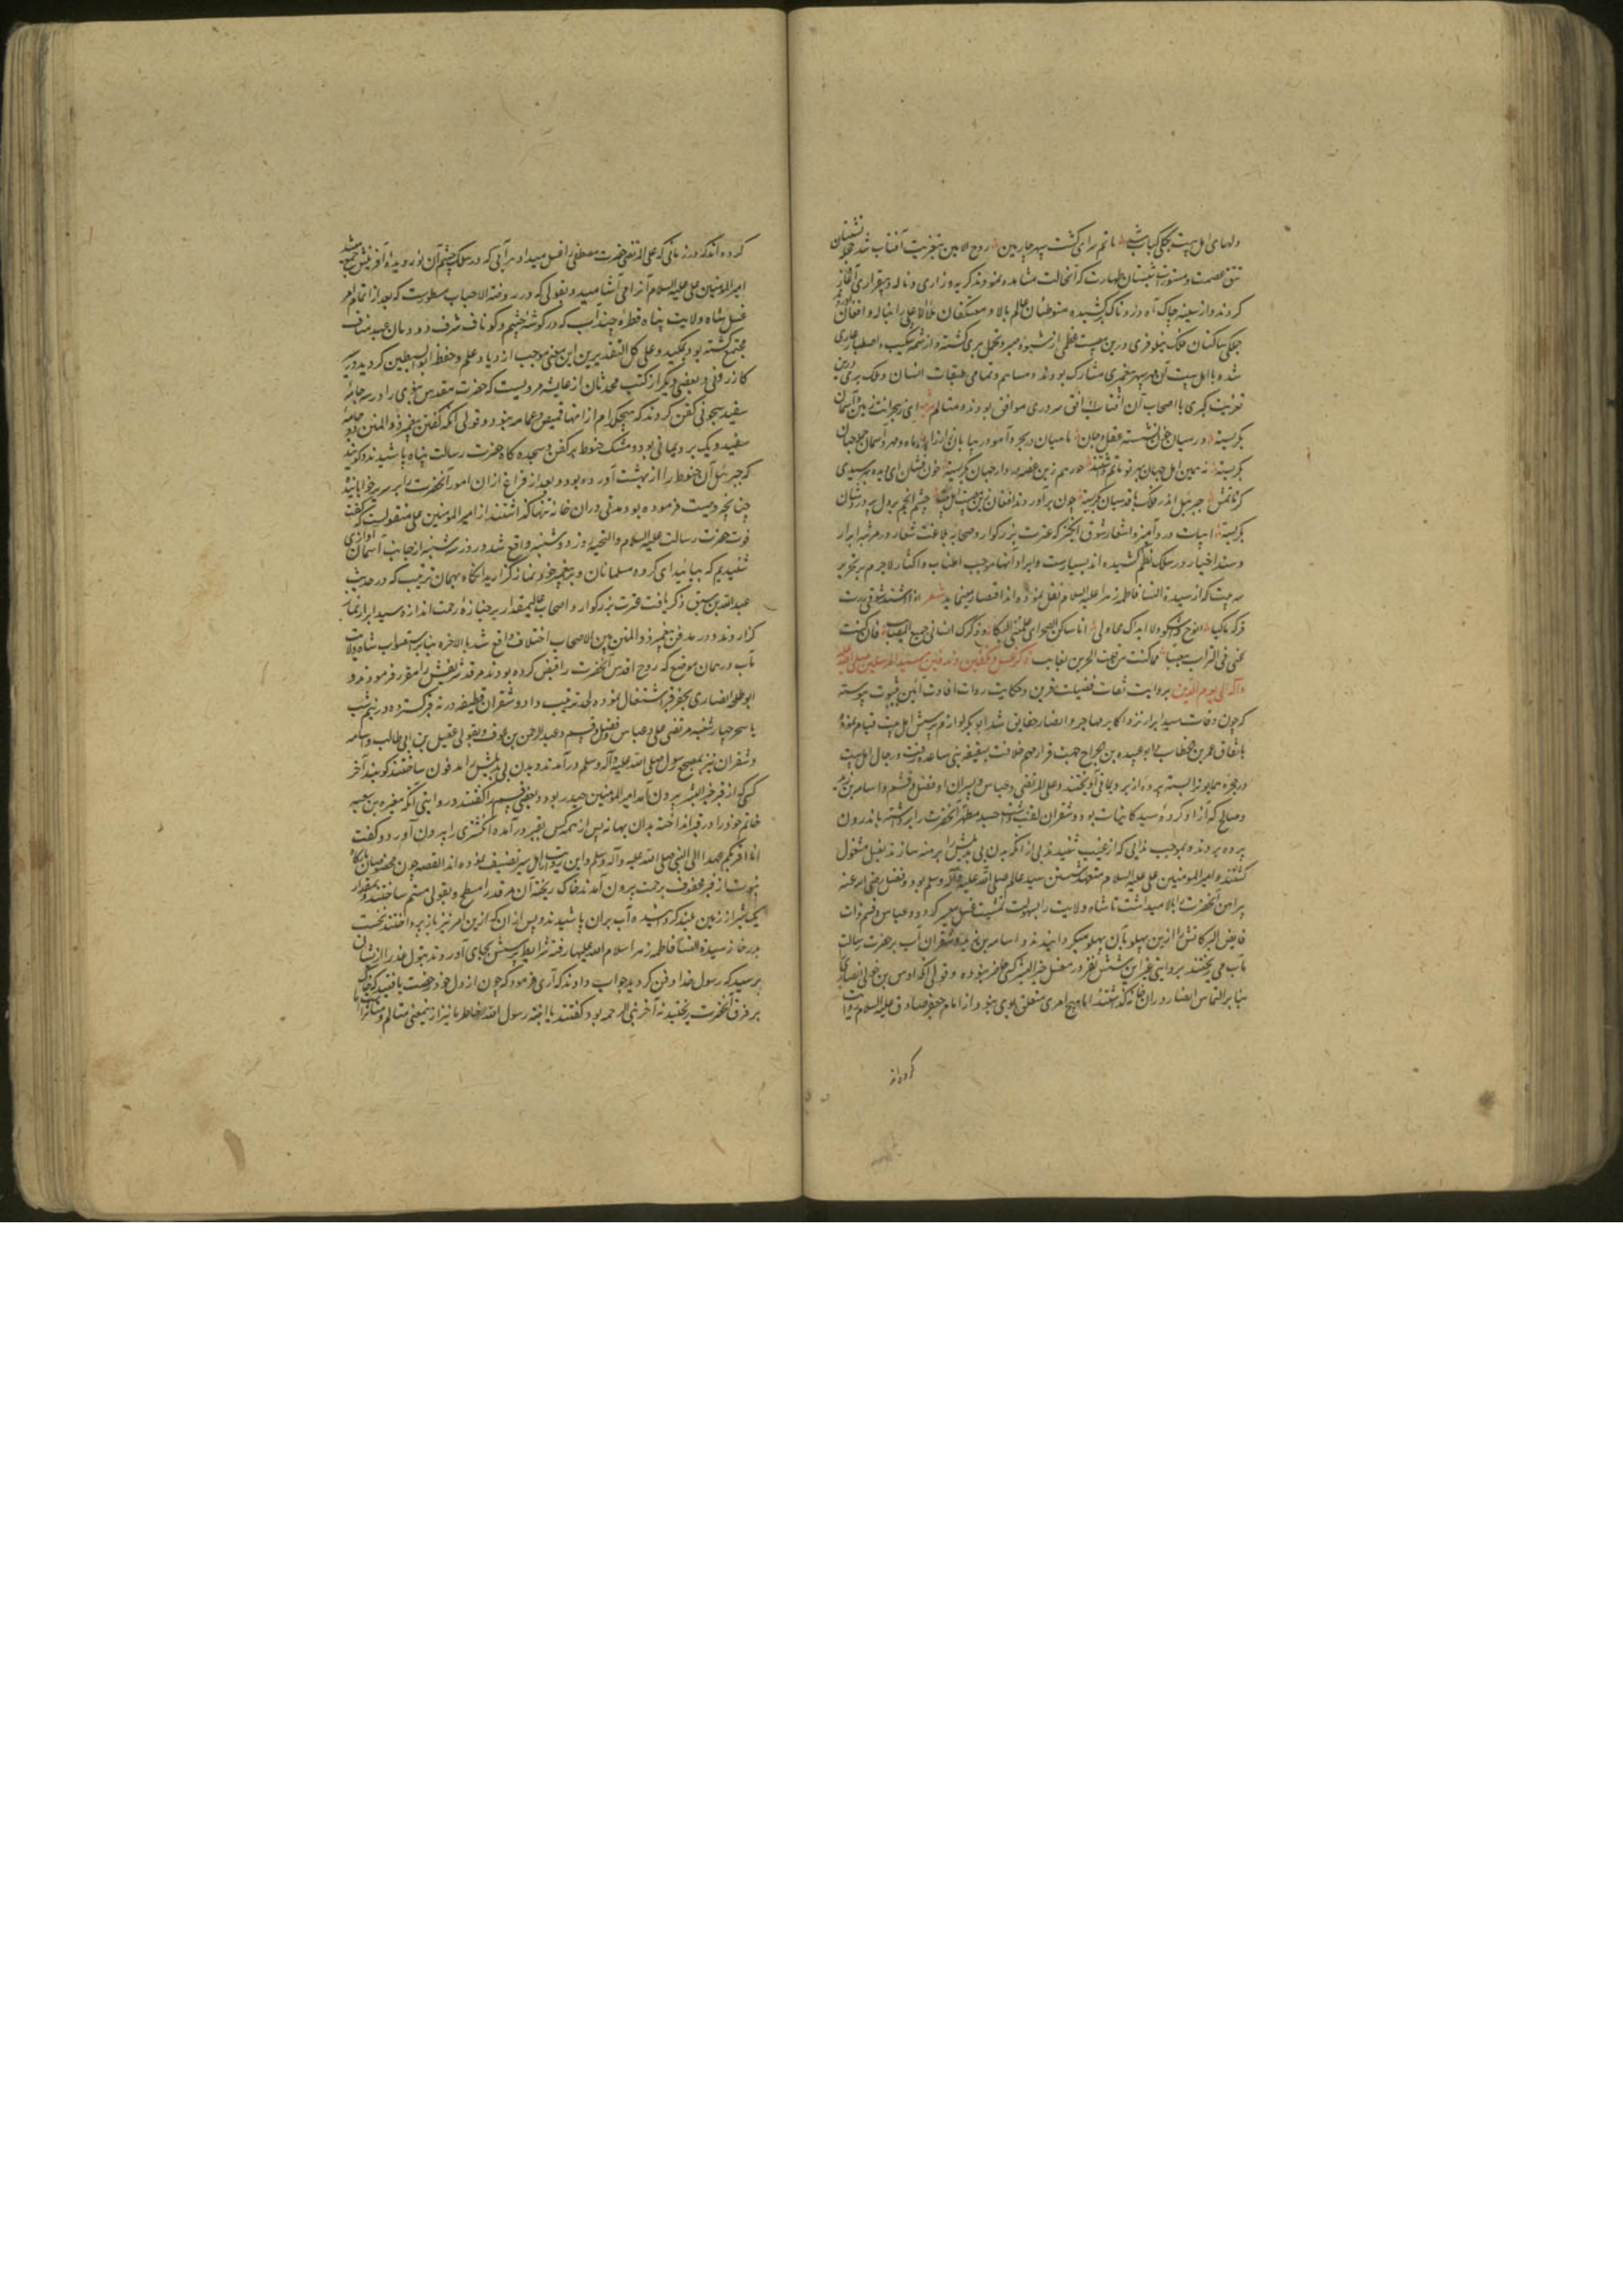 دلهای اهل بیت بکلی کباب شد ماتم سرای گشت سپهر چارمین روح الامین بتعزیت آفتاب شد
تتق عصمت و مستورات شبستان طهارت که آنحالت مشاهده نمودند گریه و زاری و ناله و بیقراری آغاز
کردند و از سینه چاک آه دردناک برکشیده متوطنان عالم بالا و معتکفان ملاء اعلی را بناله و افغان
جملگی ساکنان فلک نیلوفری درین مصیبت عظمی از شیوه صبر و تحمل بری گشته و از شکیب و اصطبار عاری
شده با اهل بیت آن مهر سپهر پیغمبری مشارک بودند و مساهم و تمامی طبقات انسان و ملک و پری درین
تعزیت کبری با اصحاب آن آفتاب افق سروری موافق بودند و متالم ای زهجرانت زمین و آسمان
بگریسته در میان خون نشسته عقل و جان
بگریسته نه همین اهل جهان بهر تو ماتم داشتند حور هم زین غصه در دار جهان بگریسته خون فشان ای دیده
جبرئیل اندر فلک با قدسیان بگریسته چون برآوردند افغان زین مصیبت اهل بیت چشم انجم بر دل
بگریسته ابیات دردآمیز و اشعار شوق انگیز که عترت بزرگوار و صحابه بلاغت شعار در مرثیه ابرار
و سند اخیار در سلک نظم کشیده اند بسیارست و ایراد آنها موجب اطناب و اکثار لاجرم بر تحریر
سه بیت که از سیدة النساء فاطمه زهرا علیها السلام نقل نموده اند اقتصار مینماید شعر اذا اشتد شوقی زرت
قبرک باکیا انوح و اشکو لا اراک مجاوبی ایا ساکن الصحراء علمتنی البکا و ذکرک انسانی جمیع المصائب فان کنت
عنی فی التراب مغیبا فما کنت عن قلب الحزین بغائب ذکر غسل و تکفین و تدفین سید المرسلین صلی الله علیه
وآله الی یوم الدین بروایت ثقات فضیلت قرین و حکایت روات افادت آئین بثبوت پیوسته
که چون وفات سید ابرار نزد اکابر مهاجر و انصار تحقیق شد ابوبکر لوازم پرسش اهل بیت قیام نموده
باتفاق عمر بن الخطاب و ابو عبیده بن الجراح جهت قرار مهم خلافت بسقیفه بنی ساعده رفت و رجال اهل بیت
در حجره همایون را بسته پرده از برد یمانی آویختند و علی المرتضی و عباس و پسران او فضل و قثم و اسامه بن زید
و صالح که آزاد کرده سید کاینات بود و شقران لقب داشت جسد مطهر آنحضرت را برداشته باندرون
پرده بردند و بموجب ندایی که از غیب شنیدند بی از آنکه بدن بی بدیلش را برهنه سازند بغسل مشغول
گشتند و امیر المومنین علی علیه السلام متعهد شستن سید عالم صلی الله علیه وآله وسلم بود و فضل رضی الله عنه
پیراهن آنحضرت را بالا میداشت تا شاه ولایت را بسهولت تمشیت غسل میسر گردد و عباس و قثم ذات
فایض البرکاتش را ازین پهلو بآن پهلو میگردانیدند و اسامه بن زید و شقران آب بر حضرت رسالت
مآب می ریختند بروایتی غیر این شش نفر در مغسل خیر البشر کسی حاضر نبوده و قولی آنکه اوس بن خولی انصاری
بنا بر التماس انصار در آن خانه گذاشتند اما هیچ امری متعلق بوی نبود و از امام جعفر صادق علیه السلام روایت
کرده اند
کرده اند که در زمانی که علی المرتضی حضرت مصطفی را غسل میداد هر آبی که در چشم آن نور دیده آفرینش جمع میشد
امیر المومنین علی علیه السلام آنرا می آشامید و بقولی که در روضة الاحباب مسطورست که بعد از اتمام امر
غسل شاه ولایت پناه قطره چند آب که در گوشه چشم و گو ناف شرف دودمان عبد مناف
مجتمع گشته بود بمکید و علی کل التقدیرین این معنی موجب ازدیاد علم و حفظ ابو السبطین گردید و در
کازرونی و بعضی دیگر از کتب محدثان از عایشه مرویست که حضرت مقدس نبوی را در سه جامه
سفید سحولی کفن کردند که هیچکدام از آنها قمیص و عمامه نبود و قولی آنکه کفن پیغمبر ذو المنن دو جامه
سفید و یک برد یمانی بود و مشک حنوط بر کفن و سجده گاه حضرت رسالت پناه پاشیدند و گویند
که جبرئیل آن حنوط را از بهشت آورده بود و بعد از فراغ از آن امور آنحضرت را بر سریر خوابانیده
چنانچه وصیت فرموده بود مدتی در آن خانه تنها گذاشتند از امیر المومنین علی منقولست که گفت
فوت حضرت رسالت علیه السلام و التحیة روز دوشنبه واقع شد و روز سه شنبه از جانب آسمان آوازی
شنیدیم که بیائید ای گروه مسلمانان و بر پیغمبر خود نماز گزارید آنگاه بهمان ترتیب که در حدیث
عبد الله بن سبق ذکر یافت عترت بزرگوار و اصحاب عالیمقدار بر جنازه رحمت اندازه سید ابرار نماز
گزاردند و در مدفن پیغمبر ذو المنن بین الاصحاب اختلاف واقع شد بالاخره بنا بر استصواب شاه ولایت
مآب در همان موضع که روح اقدس آنحضرت را قبض کرده بودند مرقد شریفش را مقرر فرمودند و
ابو طلحه انصاری بحفر قبر اشتغال نموده لحد ترتیب داد و شقران قطیفه در ته قبر گسترده در نیم شب
یا سحر چهارشنبه مرتضی علی و عباس و فضل و قثم و عبد الرحمن بن عوف و بقولی عقیل بن ابی طالب و اسامه
و شقران نیز بمضجع رسول صلی الله علیه وآله وسلم درآمدند و بدن بی بدیلش را مدفون ساختند گویند آخر
کسی که از قبر خیر البشر بیرون آمد امیر المومنین حیدر بود و بعضی قثم را گفتند و روایتی آنکه مغیره بن شعبه
خاتم خود را در قبر انداخته بدان بهانه پس از همه کس بقبر درآمده انگشتری را بیرون آورد و گفت
انا اقربکم عهدا الی النبی صلی الله علیه وآله وسلم و این روایت را اهل سیر تضعیف نموده اند القصه چون مخصوصان بارگاه
نبوت از قبر محفوف برحمت بیرون آمدند خاک ریخته آن مرقد را مسطح و بقولی مسنم ساختند و بمقدار
یک شبر از زمین بلند کرده آب بر آن پاشیدند و پس از آن که ازین امر نیز باز پرداختند نخست
بدر خانه سیدة النساء فاطمه زهرا سلام الله علیها رفته شرایط پرسش بجای آوردند بتول عذرا از ایشان
پرسید که رسول خدا را دفن کردید جواب دادند که آری فرمود که چون از دل خود رخصت یافتید که خاک
بر فرق آنحضرت ریختید نه آخر نبی الرحمه بود گفتند یا ابنة رسول الله خاطر ما نیز ازینمعنی متالم و متاثر است